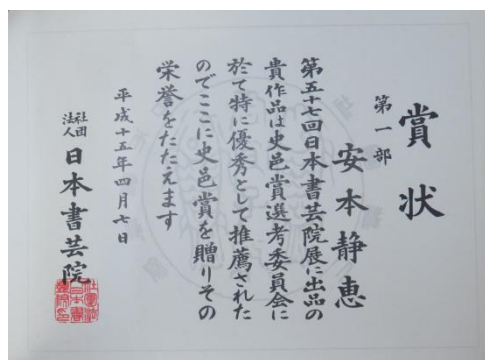 賞状
第一部
安本静恵
第五十七回日本書芸院展に出品の
貴作品は史邑賞選考委員会に
於て特に優秀として推薦された
のでここに史邑賞を贈りその
栄誉をたたえます
平成十五年四月七日
社団法人日本書芸院